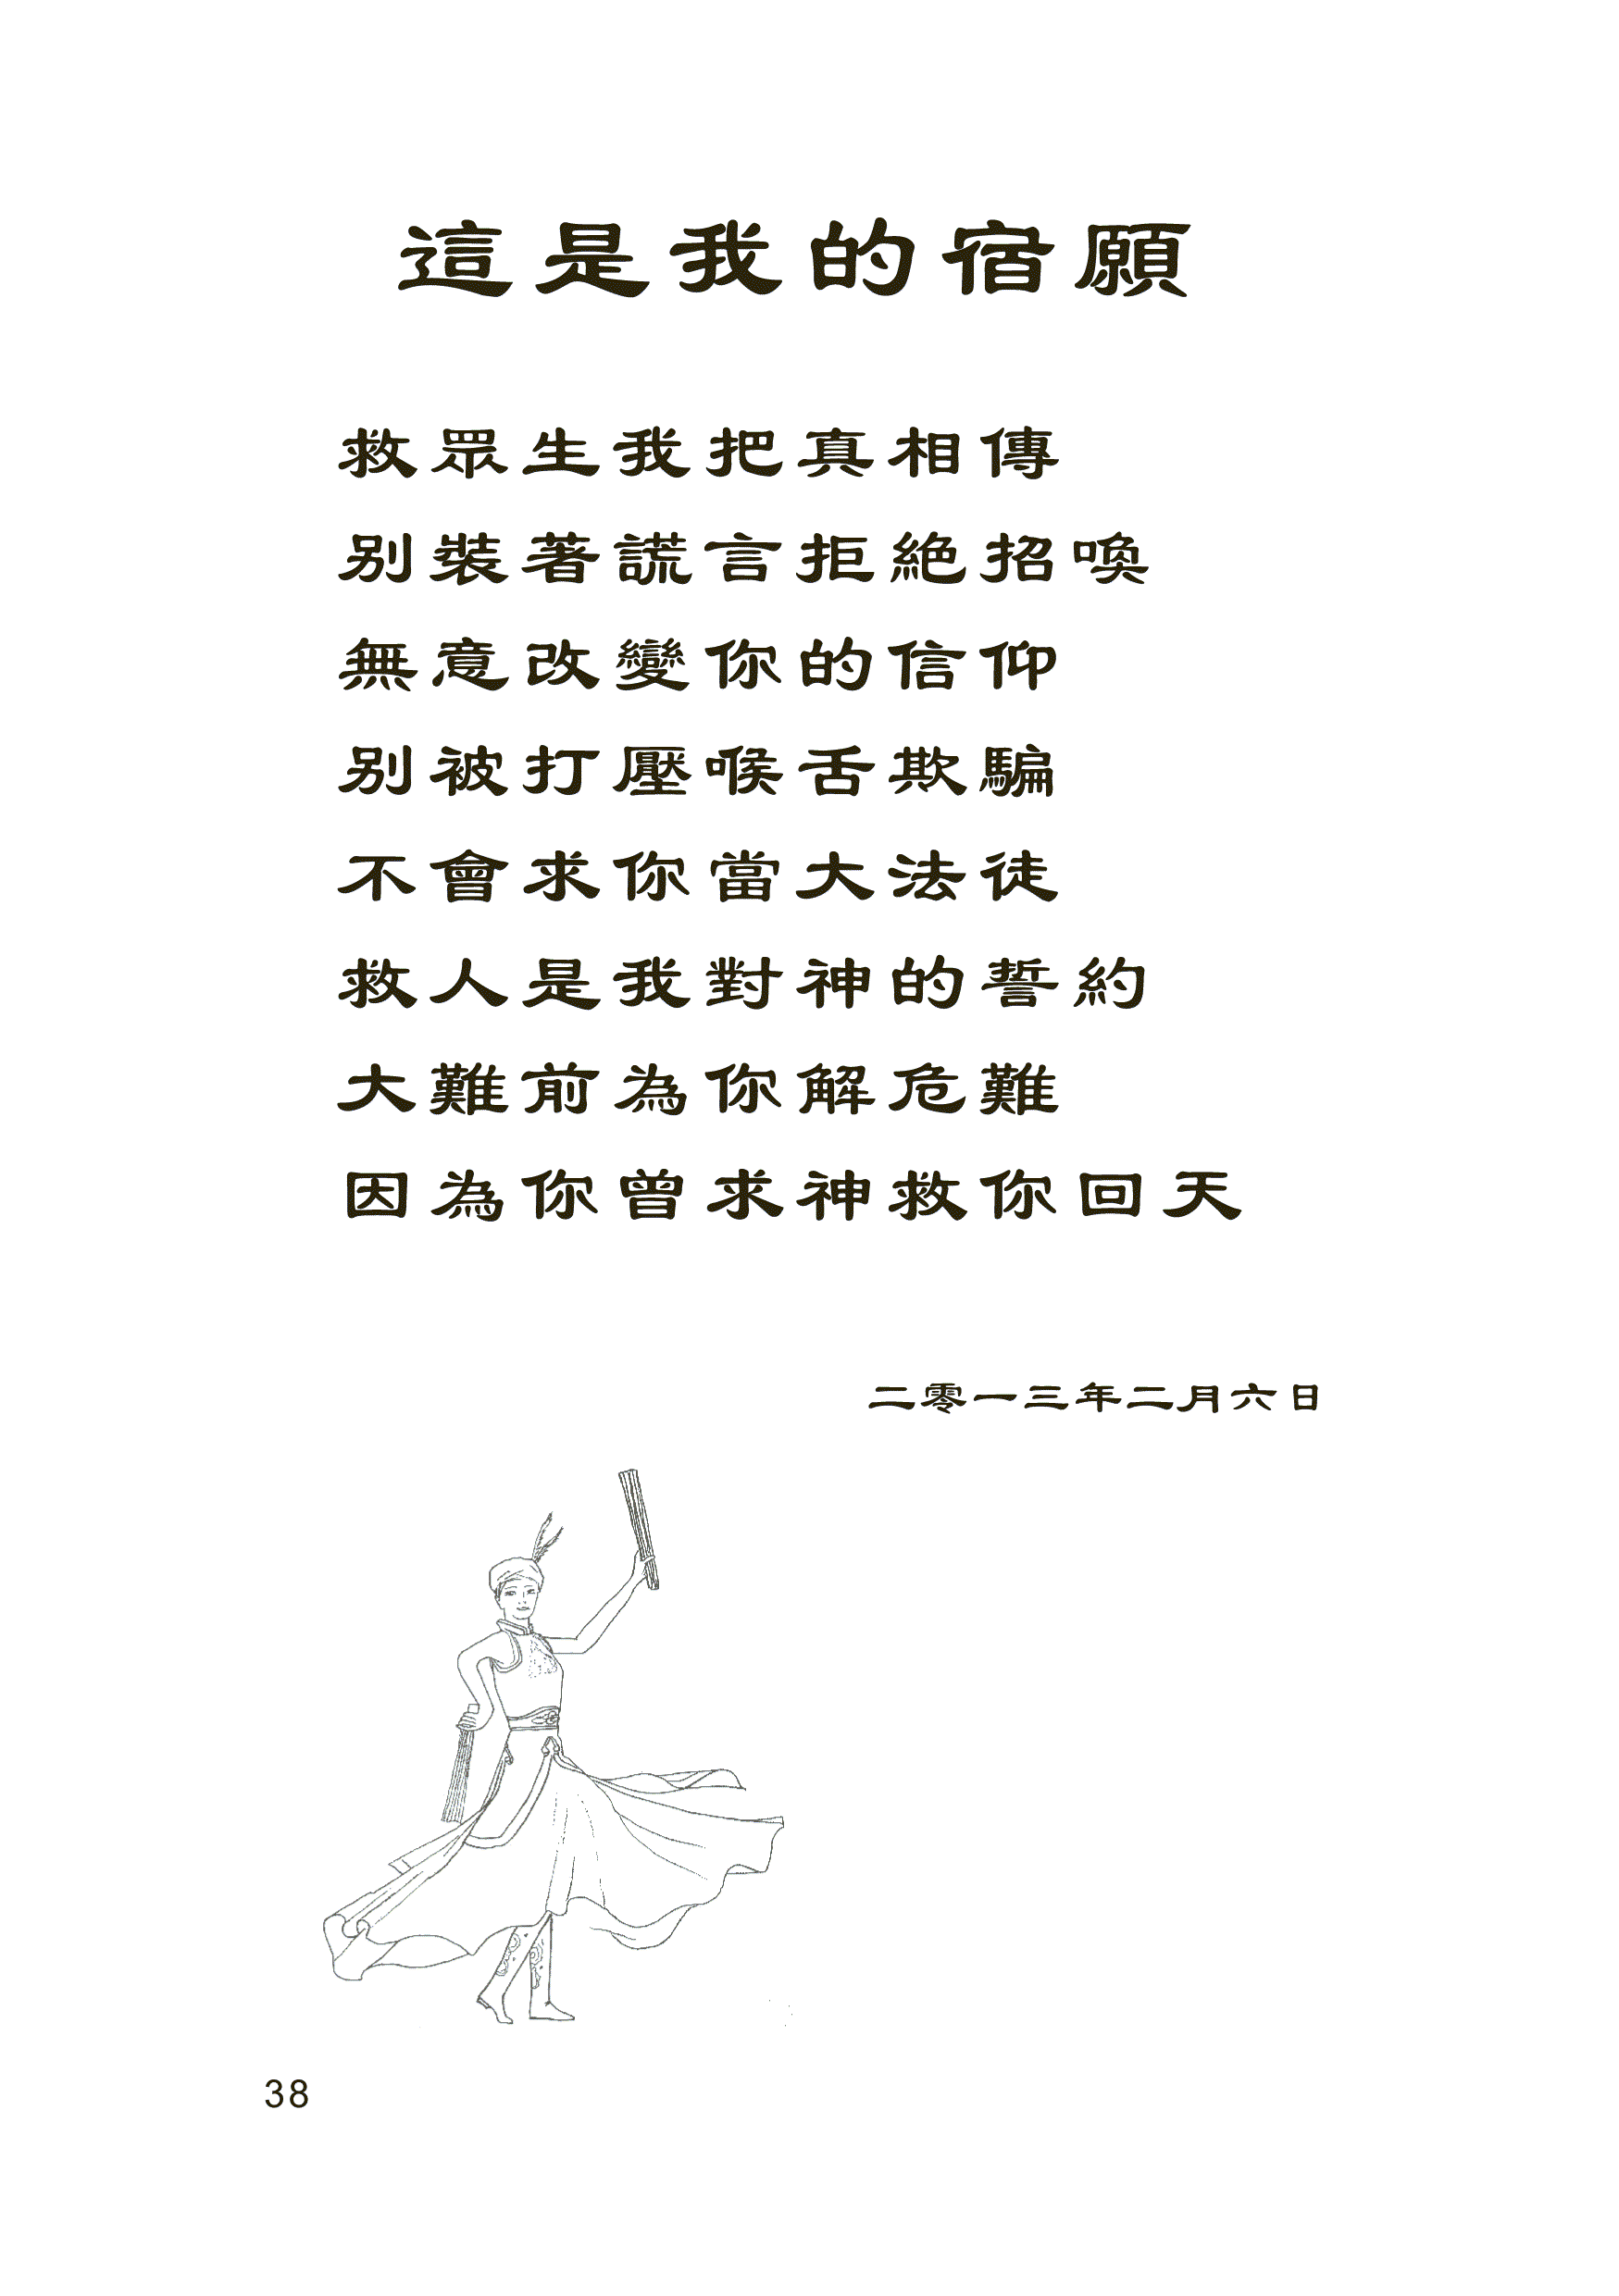 這是我的宿願
救眾生我把真相傳
別裝著謊言拒絕招喚
無意改變你的信仰
別被打壓喉舌欺騙
不會求你當大法徒
救人是我對神的誓約
大難前為你解危難
因為你曾求神救你回天
二零一三年二月六日
38